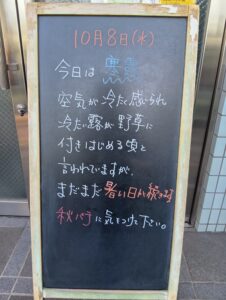 10月8日(水)
今日は 寒露
空気が冷たく感じられ
冷たい露が野草に
付きはじめる頃と
言われていますが、
まだまだ暑い日が続きます
秋バテに気をつけて下さい。